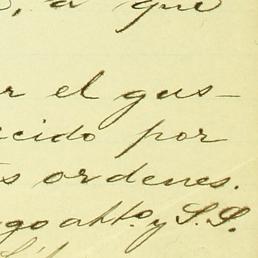 , a que
r el gus-
cido por
s ordenes.
go atto. y S. S.